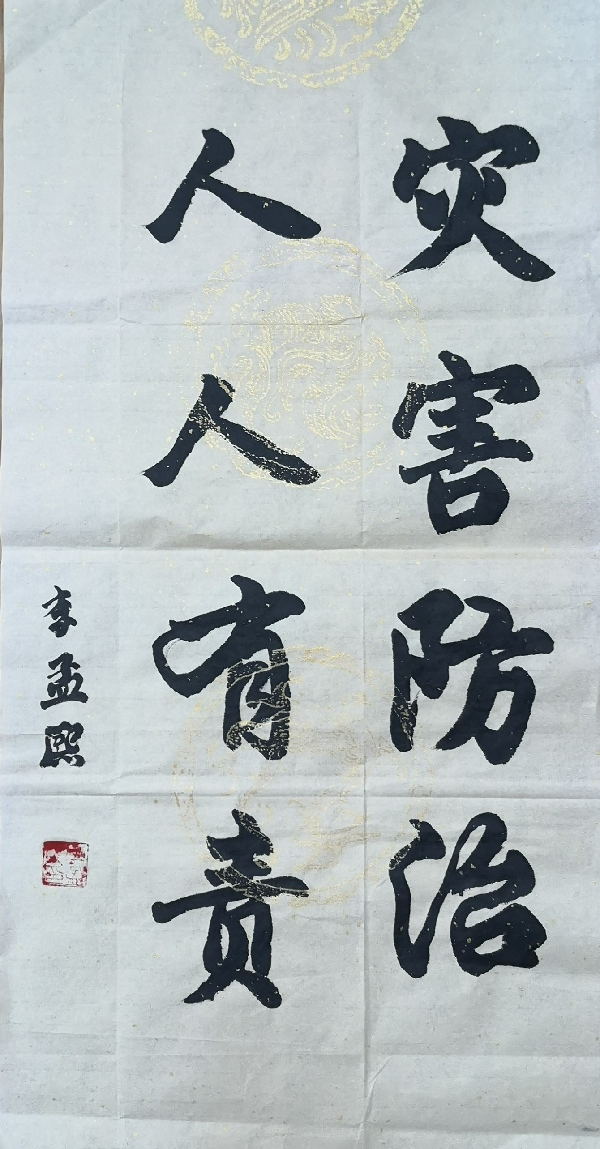 灾害防治
人人有责
李孟熙